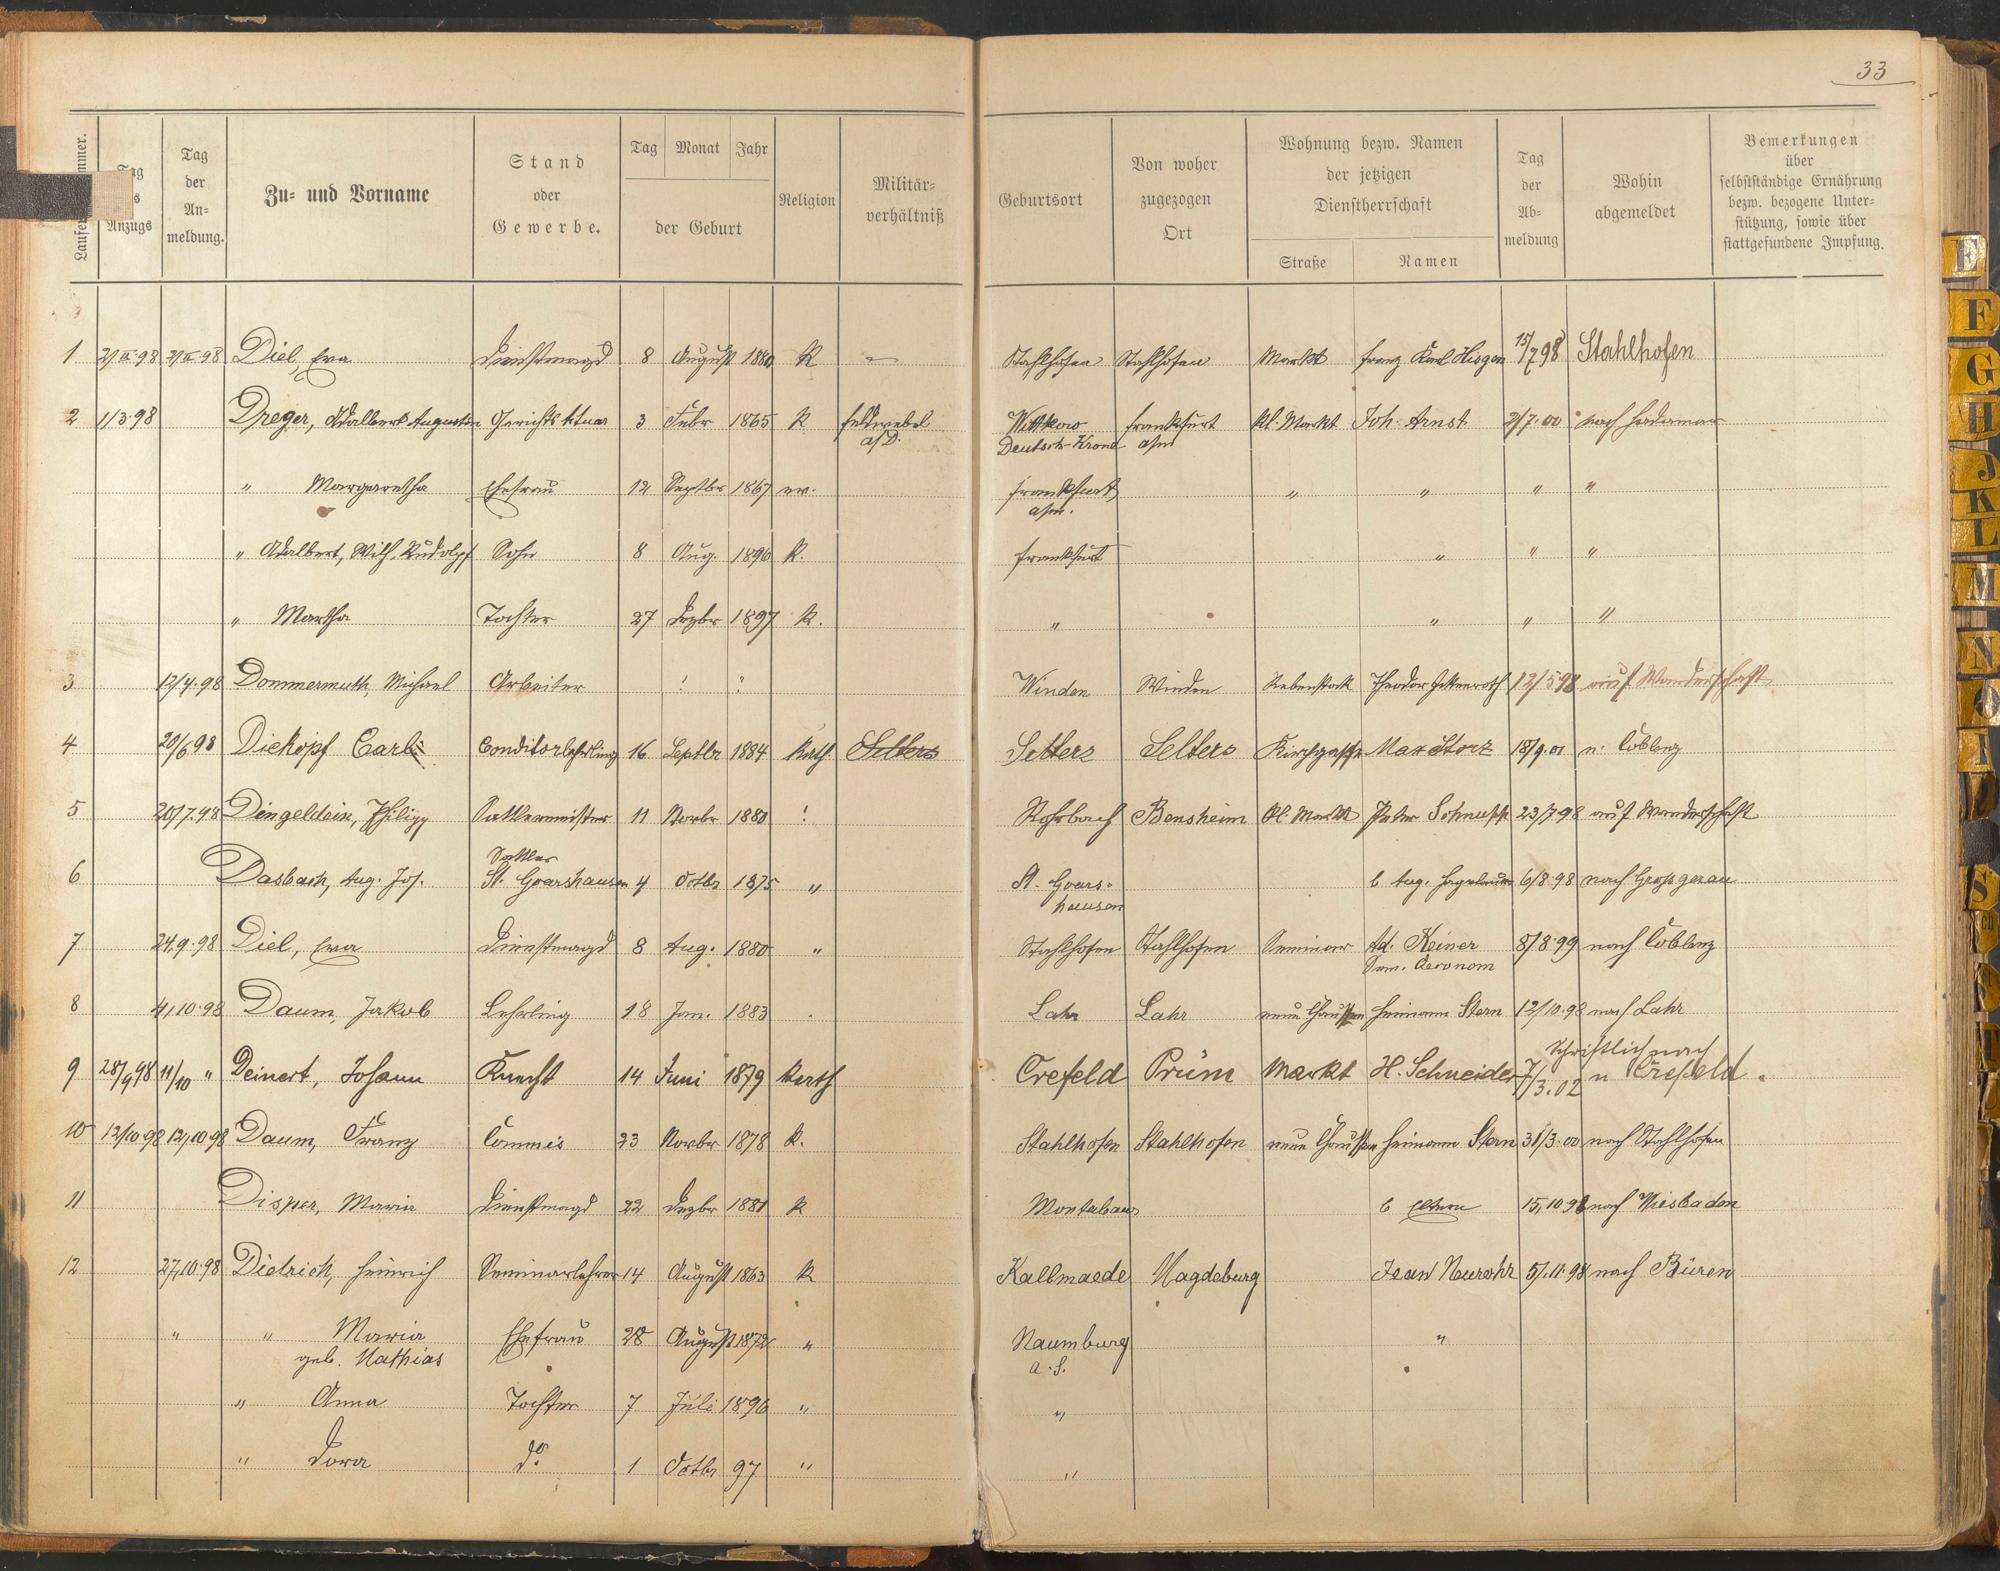 33
Laufende Nummer.
Tag des Anzugs
Tag der Anmeldung.
Zu= und Vorname
Stand oder Gewerbe.
Tag Monat Jahr
der Geburt
Religion
Militär=verhältniß
Geburtsort
Von woher zugezogen Ort
Wohnung bezw. Namen der jetzigen Dienstherrschaft
Straße Namen
Tag der Ab=meldung
Wohin abgemeldet
Bemerkungen über selbstständige Ernährung bezw. bezogene Unter=stützung, sowie über stattgefundene Impfung.
1 Diel, Eva Dienstmagd 8 August 1880 K — Stahlhofen Stahlhofen Markt Franz Karl Hisgen 15/7 98 Stahlhofen
2 1/3 98 Dreger, Adalbert Augustin Gerichtsaktuar 3 Febr 1865 K Feldwebel a/D. Wittkow Deutsch-Krone Frankfurt a/M Kl. Markt Joh. Arnst 2/7.00 nach Hadamar
" Margaretha Ehefrau 12 Septbr 1867 ev. Frankfurt a/M. " " " "
" Adalbert, Wilh. Rudolph Sohn 8 Aug. 1896 K. Frankfurt " " "
" Martha Tochter 27 Dezbr 1897 K. " " " "
3 12/4.98 Dommermuth, Michael Arbeiter Winden Winden Rebenstock Theodor 12/5 98 auf Wanderschaft
4 20/6 98 Diekopf Carl Conditorlehrling 16 Septbr 1884 Kath. Selters Selters Selters Kirchgasse Max Storz 18/9.01 n. Coblenz
5 20/7.98 Dingeldein, Philipp Sattlermeister 11 Novbr 1880 Rohrbach Bensheim Kl. Markt Peter 23/7 98 auf Wanderschaft
6 Dasbach, Aug. Jos. Sattler St. Goarshausen 4 Octbr 1875 " St. Goars-hausen b Aug. 6/8 98 nach Grossgerau
7 24.9.98 Diel, Eva Dienstmagd 8 Aug. 1880 " Stahlhofen Stahlhofen Seminar Ad. Keiner Sem. Oeconom 8/8 99 nach Coblenz
8 4/10.98 Daum, Jakob Lehrling 18 Jan. 1883 Lahr Lahr neue Chaussee Heimann Stern 12/10.98 nach Lahr
9 28/9 98 11/10 " Deinert, Johann Knecht 14 Juni 1879 Kath Crefeld Prüm Markt H. Schneider 7/3.02 schriftlich nach n Crefeld.
10 12/10 98 12/10 98 Daum, Franz Commis 23 Novbr 1878 K. Stahlhofen Stahlhofen neue Chaussee Heimann Stern 31/3.00 nach Stahlhofen
11 Disper, Maria Dienstmagd 22 Dezbr 1881 K Montabaur b Eltern 15,10 98 nach Wiesbaden
12 27,10.98 Dietrich, Heinrich Seminarlehrer 14 August 1863 K Kallmaede Magdeburg Jean Neurohr 5/.11.98 nach Büren
" " Maria geb. Mathias Ehefrau 28 August 1872 " Naumburg a.S. "
" Anna Tochter 7 Juli 1896 " "
" Dora do 1 Octbr 97 " "
E
F
G
H
J
K
L
M
N
O